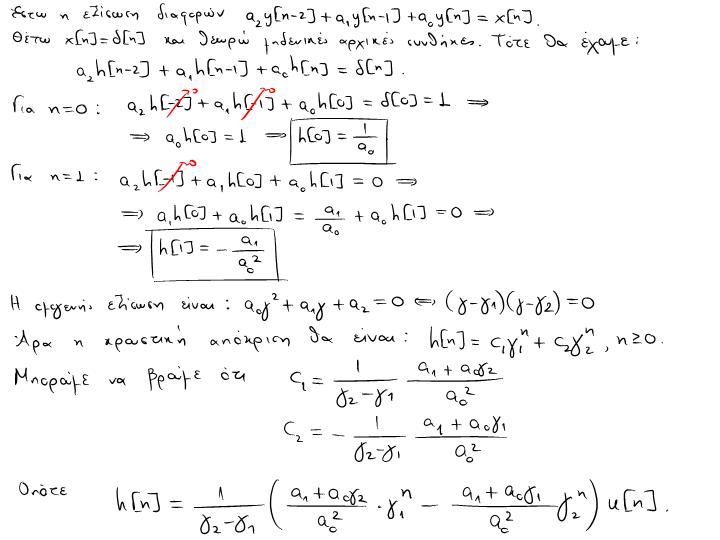 Έστω η εξίσωση διαφορών a₂y[n-2]+a₁y[n-1]+a₀y[n]=x[n].
Θέτω x[n]=δ[n] και θεωρώ μηδενικές αρχικές συνθήκες. Τότε θα έχουμε:
a₂h[n-2]+a₁h[n-1]+a₀h[n]=δ[n].
Για n=0: a₂h[-2]→0+a₁h[-1]→0+a₀h[0]=δ[0]=1 ⇒
⇒ a₀h[0]=1 ⇒ h[0]=1/a₀
Για n=1: a₂h[-1]→0+a₁h[0]+a₀h[1]=0 ⇒
⇒ a₁h[0]+a₀h[1]=a₁/a₀+a₀h[1]=0 ⇒
⇒ h[1]=-a₁/a₀²
Η ομογενής εξίσωση είναι: a₀γ²+a₁γ+a₂=0 ⇔ (γ-γ₁)(γ-γ₂)=0
Άρα η κρουστική απόκριση θα είναι: h[n]=c₁γ₁ⁿ+c₂γ₂ⁿ, n≥0.
Μπορούμε να βρούμε ότι C₁=1/(γ₂-γ₁) (a₁+a₀γ₂)/a₀²
C₂=-1/(γ₂-γ₁) (a₁+a₀γ₁)/a₀²
Οπότε h[n]=1/(γ₂-γ₁)((a₁+a₀γ₂)/a₀²·γ₁ⁿ-(a₁+a₀γ₁)/a₀² γ₂ⁿ)u[n].